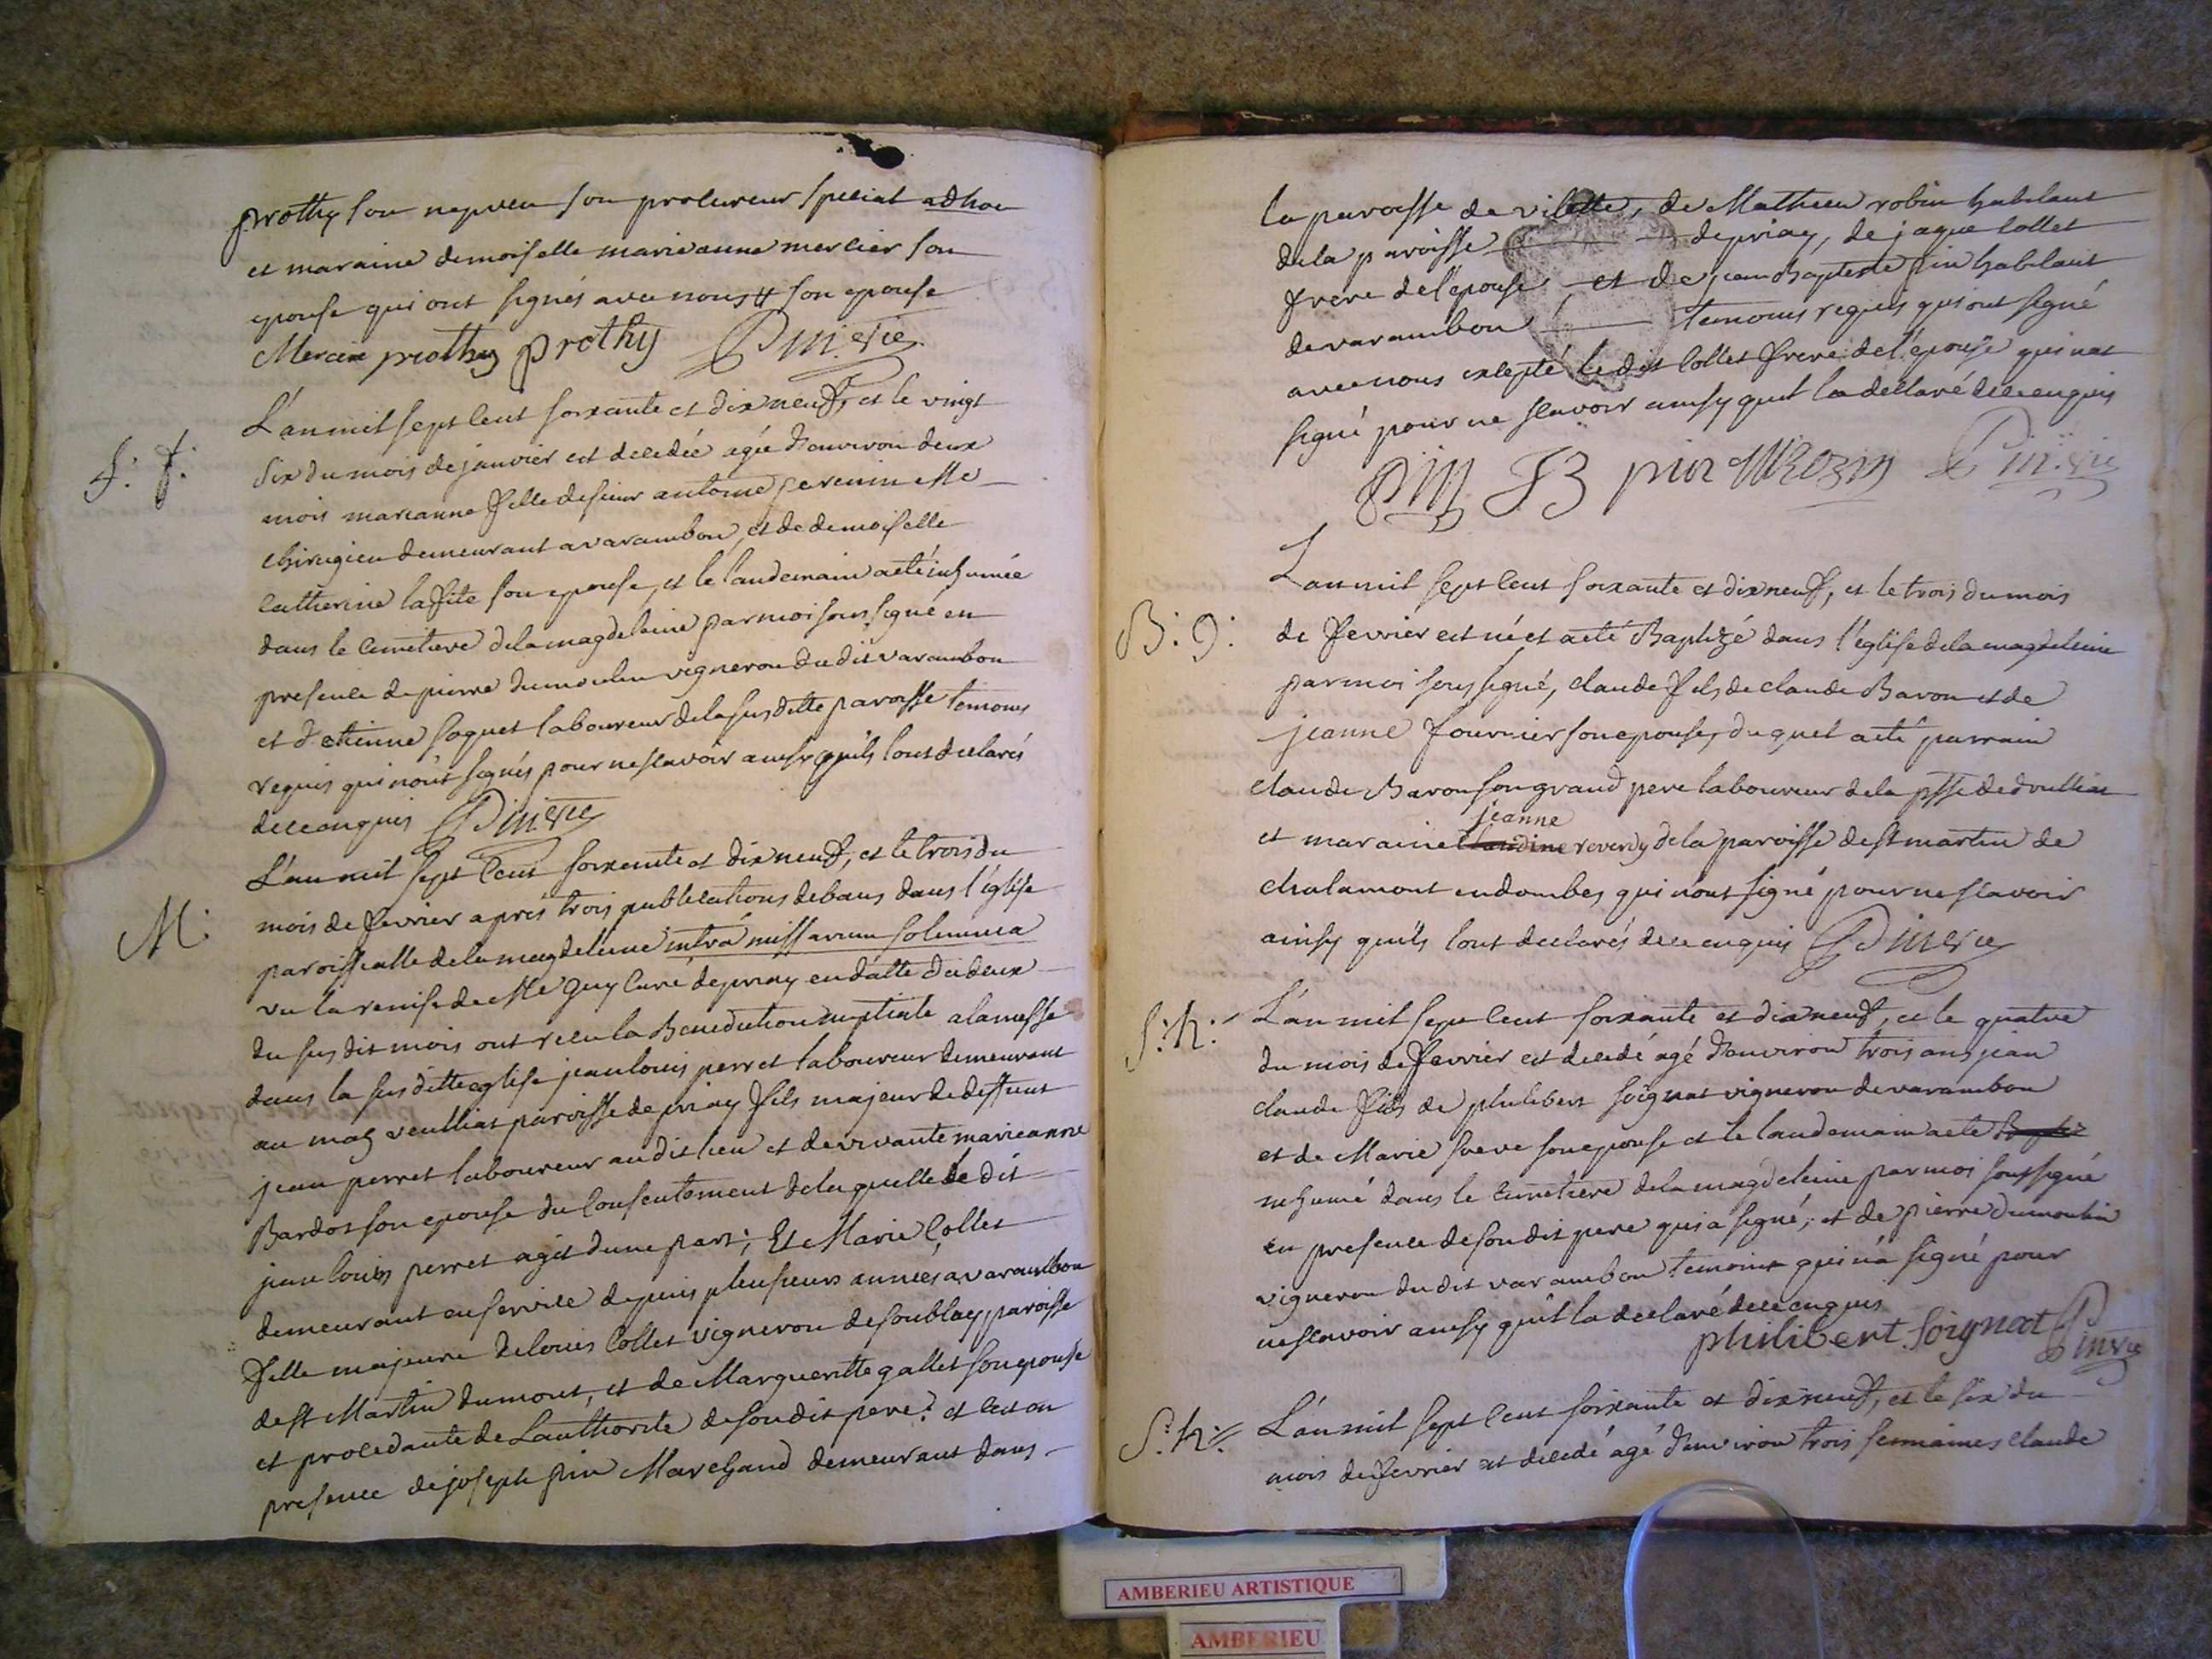 prothy son nepveu son procureur special adhoc
et maraine demoiselle marieanne mercier son
epouse qui ont signés avec nous # son epouse
Mercier prothy prothy
L'an mil sept cent soixante et dix neuf, et le vingt
S: f:
six du mois de janvier est decedée agée d'environ deux
mois marianne fille de sieur antoine perenin Me
chirugien demeurant a varambon, et de demoiselle
catherine lafite son epouse, et le landemain a eté inhumée
dans le cemetiere dela magdeleine par moi soussigné en
presence de pierre dumoulin vigneron du dit varambon
et d'etienne foquet laboureur dela susditte paroisse temoins
requis qui n'ont signés pour ne scavoir ainsy qu'ils l'ont declarés
de ce enquis
L'an mil sept cent soixante et dix neuf, et le trois du
M:
mois de fevrier aprés trois publications de bans dans l'église
paroissialle dela magdeleine intrá missarum solemnia
vu la remise de Me Guy curé de priay en datte du deux
du sus dit mois ont recu la Benediction nuptiale a la messe
dans la susditte eglise jean louis perret laboureur demeurant
au mas veulliat paroisse de priay fils majeur de deffunt
jean perret laboureur au dit lieu et de vivante marieanne
Bardot son epouse du consentement de laquelle le dit
jean louis perret agit d'une part; Et Marie Collet
demeurant en service depuis plusieurs années a varambon
fille majeure de louis Collet vigneron de soublay paroisse
de st Martin dumont, et de Margueritte gallet son epouse
et procedante de L'authorité de son dit pere: et c'est en
presence de joseph pin Marchand demeurant dans
la paroisse de vilette, de Mathieu robin habitant
dela paroisse de priay, de jaque collet
frere de l'epouse et de jean Baptiste pin habitant
de varambon temoins requis qui ont signé
avec nous excepté le dit Collet frere de l'epouse qui n'at
signé pour ne scavoir ainsy qu'il l'a declaré de ce enquis
pin JB pin MRozin
L'an mil sept cent soixante et dix neuf, et le trois du mois
B: 9:
de fevrier est né et a eté Baptizé dans l'église dela magdeleine
par moi soussigné, claude fils de claude Baron et de
jeanne fournier son epouse, duquel a eté parrain
claude Baron son grand pere laboureur dela psse de druillat
jeanne
et maraine claudine reverdy dela paroisse de st martin de
chalamont en dombes qui n'ont signé pour ne scavoir
ainsy qu'ils l'ont declarés de ce enquis
S: h:
L'an mil sept cent soixante et dix neuf, et le quatre
du mois de fevrier est decedé agé d'environ trois ans jean
claude fils de philibert soignat vigneron de varambon
et de Marie son epouse et le landemain a eté
inhumé dans le cimetiere dela magdeleine par moi soussigné
en presence de son dit pere qui a signé, et de pierre dumoulin
vigneron du dit varambon temoins qui n'a signé pour
ne scavoir ainsy qu'il l'a declaré de ce enquis
philibert soignat
S: h:
L'an mil sept cent soixante et dix neuf, et le six du
mois de fevrier est decedé agé d'environ trois semaines claude
AMBERIEU ARTISTIQUE
AMBERIEU